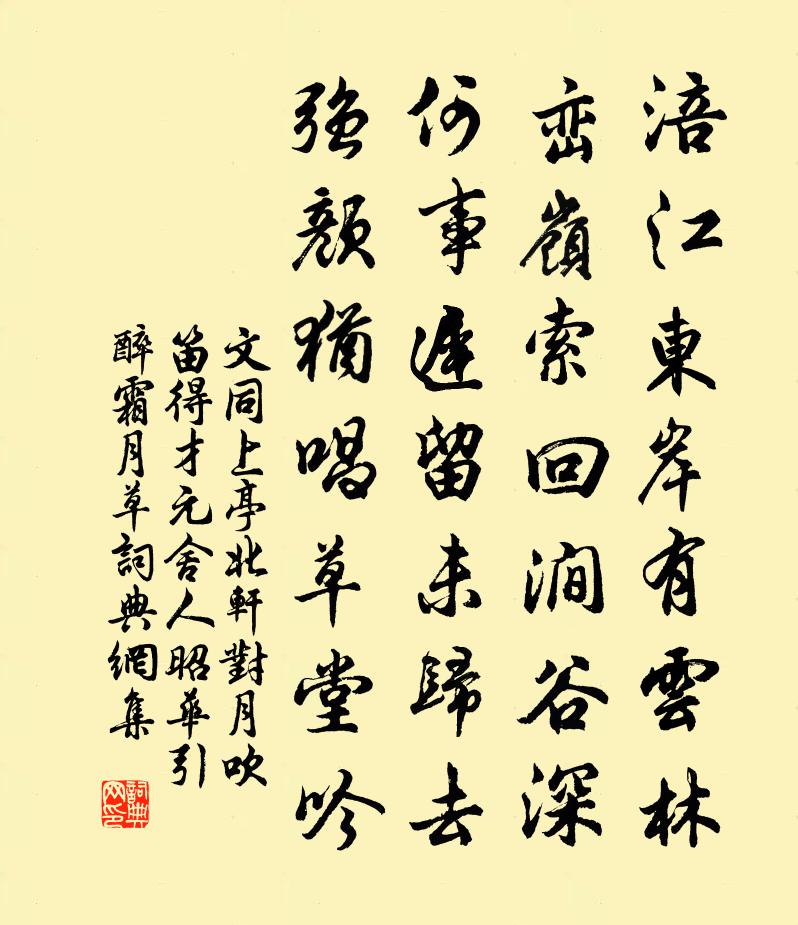 涪江東岸有雲林
巒嶺索回澗谷深
何事遲留未歸去
強顏猶唱草堂吟
文同上亭北軒對月吹
笛得才元舍人昭華引
醉霜月草詞典網集
詞典網印